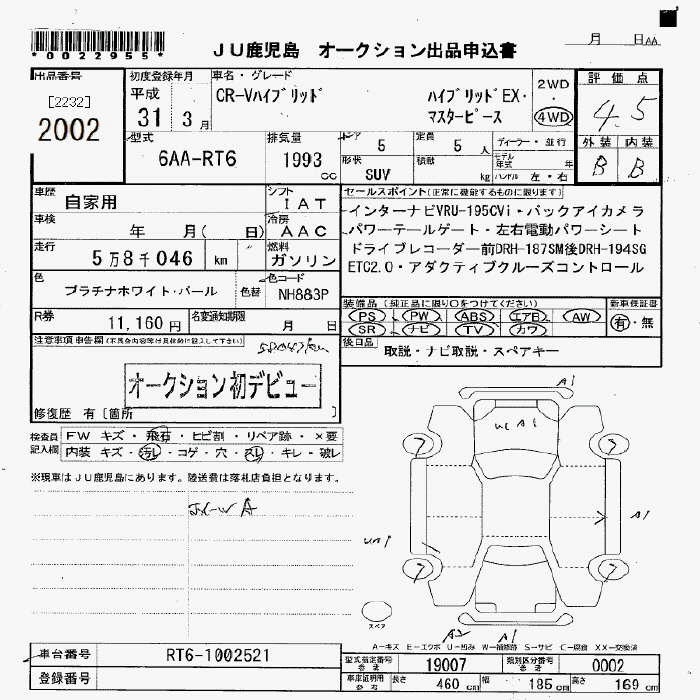 *0022955*
JU鹿児島 オークション出品申込書
月 日AA
出品番号
[2232]
2002
初度登録年月
平成
31 3月
車名・グレード
CR-Vハイブリッド ハイブリッドEX・
マスターピース
2WD
・
4WD
評価点
4.5
外装 内装
B B
型式
6AA-RT6
排気量
1993
cc
ドア
5
定員
5 人
ディーラー・並行
形状
SUV
積載
kg
モデル年式 年
ハンドル 左・右
車歴
自家用
シフト
IAT
車検
年 月( 日)
冷房
AAC
走行
5万8千046 km
燃料
ガソリン
色
プラチナホワイト・パール
色替
色コード
NH883P
R券
11,160円
名変通知期限
月 日
セールスポイント(正常に機能するものに限ります)
インターナビVRU-195CVi・バックアイカメラ
パワーテールゲート・左右電動パワーシート
ドライブレコーダー前DRH-187SM後DRH-194SG
ETC2.0・アダクティブクルーズコントロール
装備品(純正品に限り○をつけてください)
PS PW ABS エアB AW
SR ナビ TV カワ
新車保証書
有・無
後日品
取説・ナビ取説・スペアキー
注意事項申告欄(不具合内容等は具体的に記入して下さい)
58043km
オークション初デビュー
修復歴 有[箇所 ]
検査員記入欄
FW キズ・飛石・ヒビ割・リペア跡・×要
内装 キズ・汚レ・コゲ・穴・スレ・キレ・破レ
※現車はJU鹿児島にあります。陸送費は落札店負担となります。
A1
A1
7 7
A1
7 7
スペア
A2 A1
A-キズ E-エクボ U-凹み W-補修跡 S-サビ C-腐食 XX-交換済
車台番号
RT6-1002521
登録番号
型式指定番号
参考
19007
類別区分番号
参考
0002
車庫証明用
参考
長さ 460 cm
幅 185 cm
高さ 169 cm